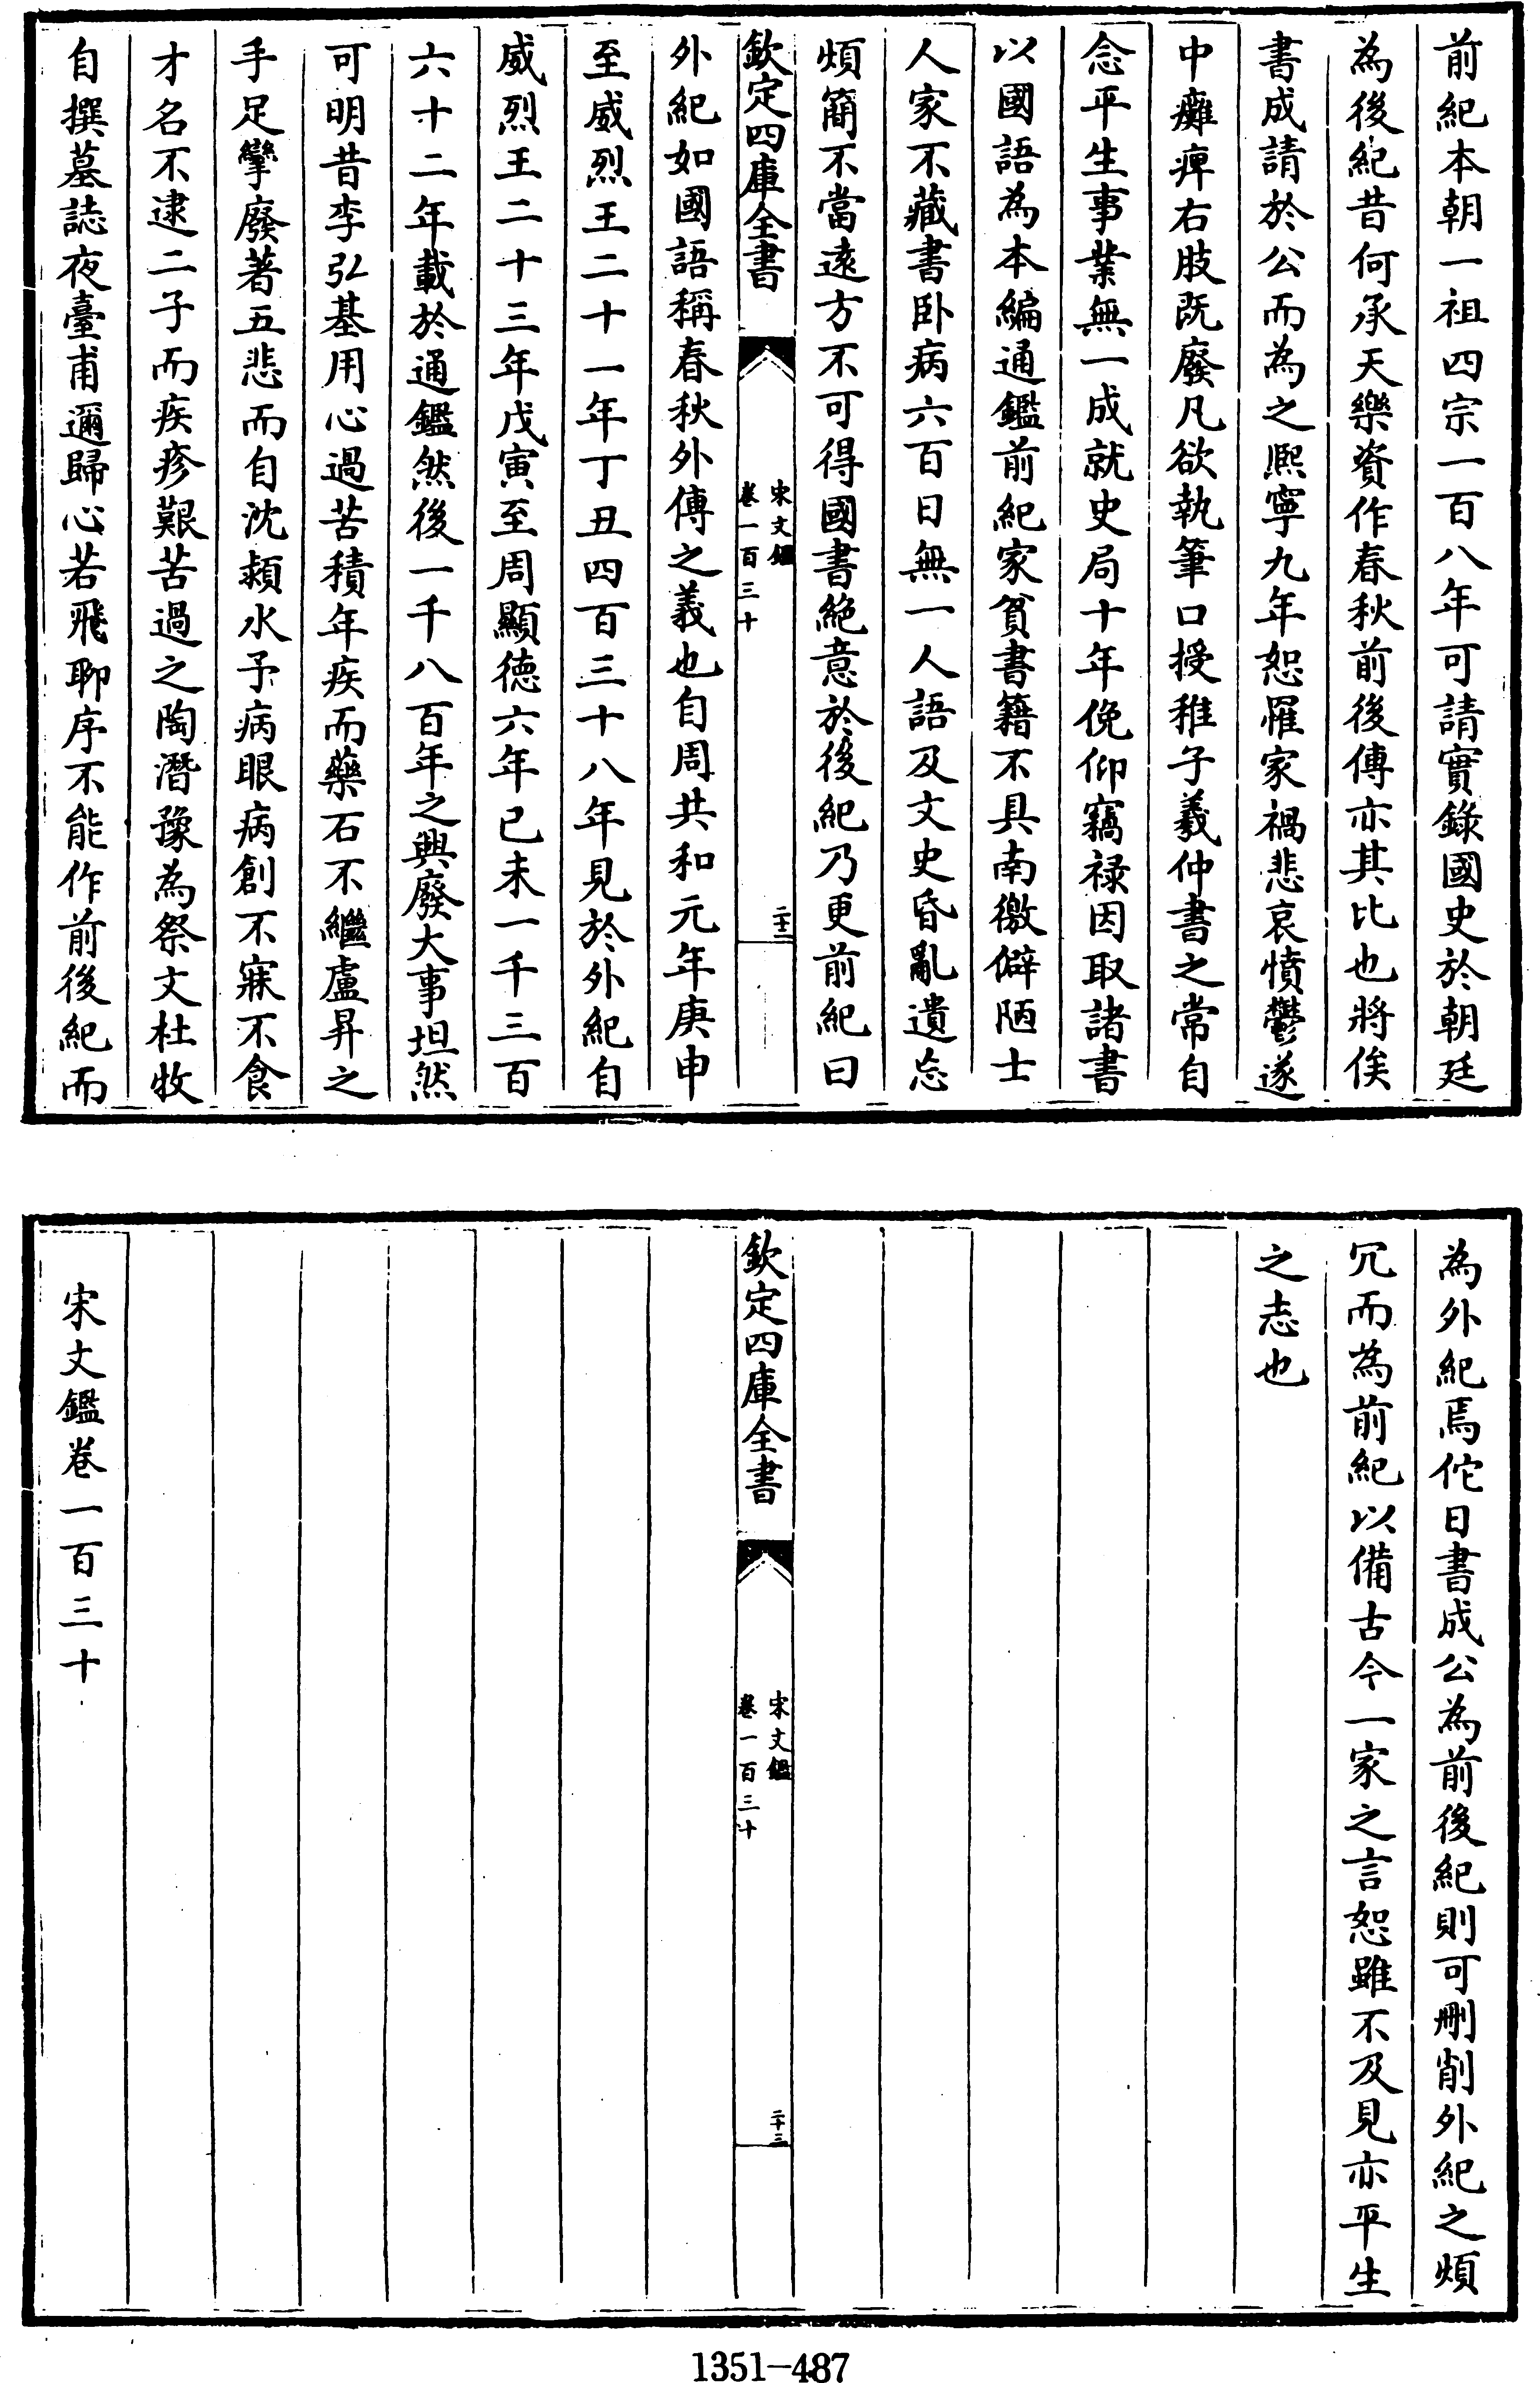 前紀本朝一祖四宗一百八年可請實錄國史於朝廷
為後紀昔何承天樂資作春秋前後傳亦其比也將俟
書成請於公而為之熈寧九年恕罹家禍悲哀憤鬱遂
中癱痺右肢既廢凡欲執筆口授稚子羲仲書之常自
念平生事業無一成就史局十年俛仰竊禄因取諸書
以國語為本編通鑑前紀家貧書籍不具南徼僻陋士
人家不藏書卧病六百日無一人語及文史昏亂遺忘
煩簡不當遠方不可得國書絶意於後紀乃更前紀曰
欽定四庫全書
宋文鑑
卷一百三十
二十二
外紀如國語稱春秋外傳之義也自周共和元年庚申
至威烈王二十一年丁丑四百三十八年見於外紀自
威烈王二十三年戊寅至周顯德六年己未一千三百
六十二年載於通鑑然後一千八百年之興廢大事坦然
可明昔李弘基用心過苦積年疾而藥石不繼盧昇之
手足攣廢著五悲而自沈潁水予病眼病創不寐不食
才名不逮二子而疾疹艱苦過之陶潛豫為祭文杜牧
自撰墓誌夜臺甫邇歸心若飛聊序不能作前後紀而
為外紀焉佗日書成公為前後紀則可刪削外紀之煩
冗而為前紀以備古今一家之言恕雖不及見亦平生
之志也
欽定四庫全書
宋文鑑
卷一百三十
二十三
宋文鑑卷一百三十
1351-487